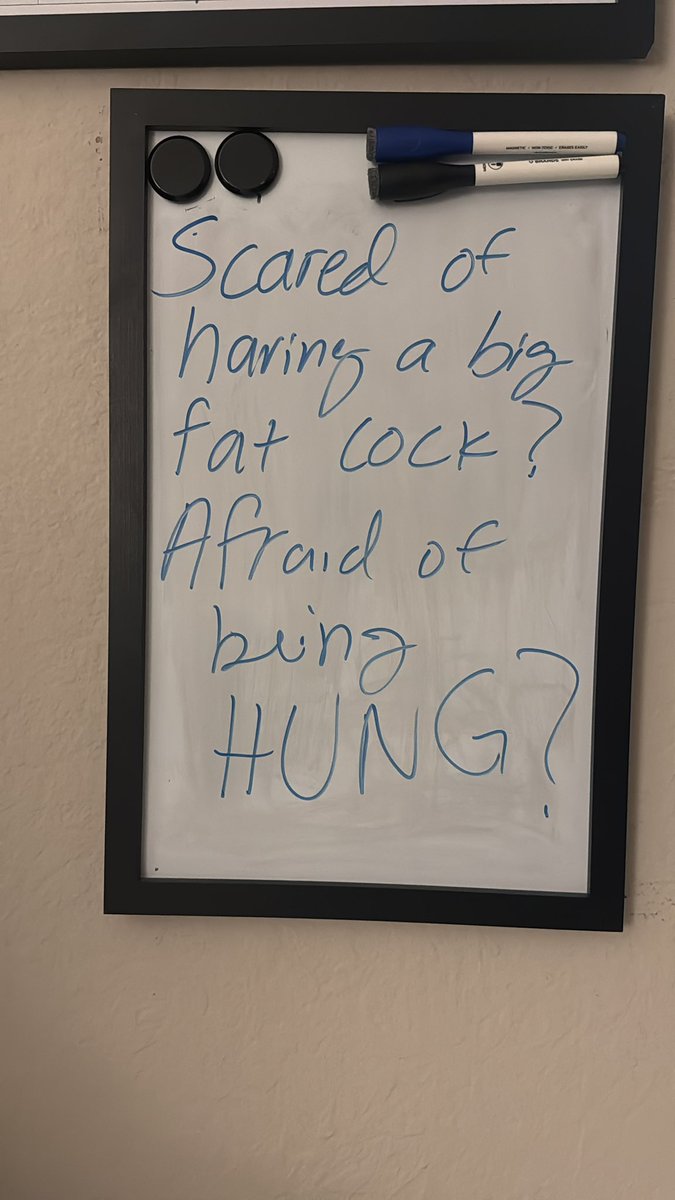 MAGNETIC • NON-TOXIC • ERASES EASILY
Scared of
having a big
fat cock?
Afraid of
being
HUNG?